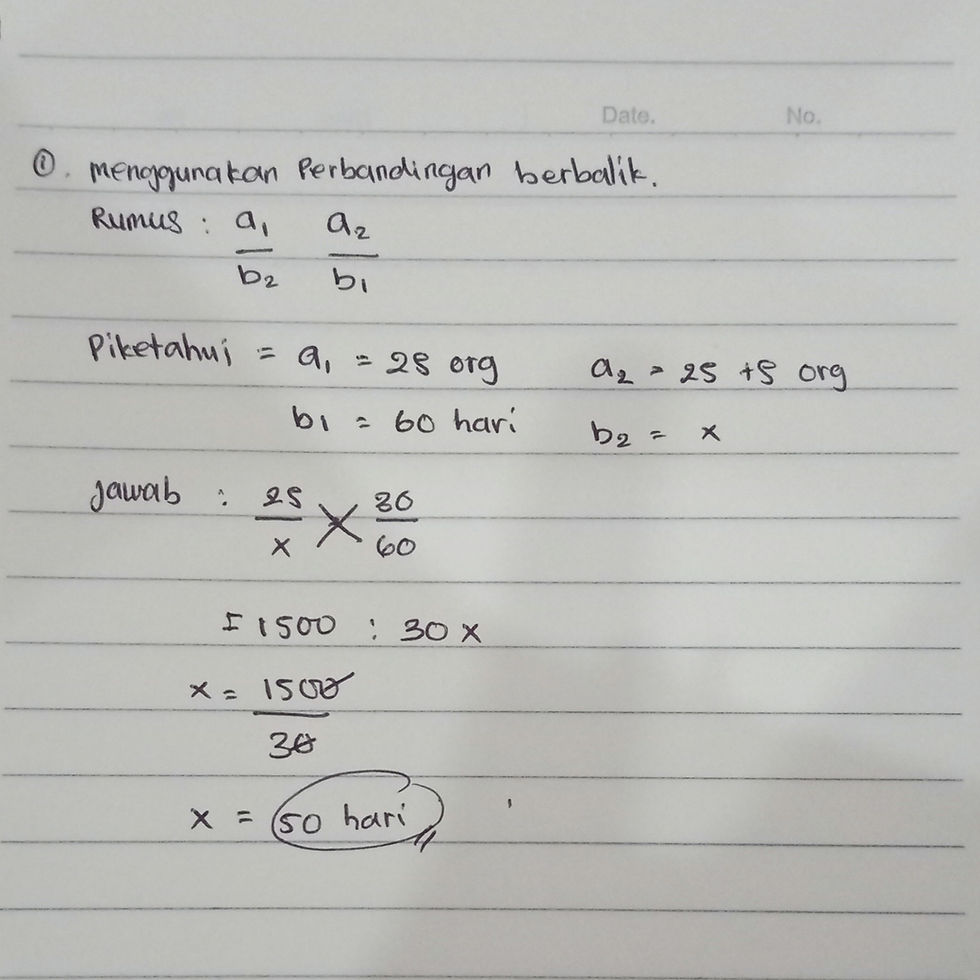 Date. No.
①. menggunakan Perbandingan berbalik.
Rumus : a₁ a₂
b₂ b₁
Diketahui = a₁ = 25 org a₂ = 25 +5 org
b₁ = 60 hari b₂ = x
Jawab : 25 30
x 60
= 1500 : 30 x
x = 1500
30
x = 50 hari